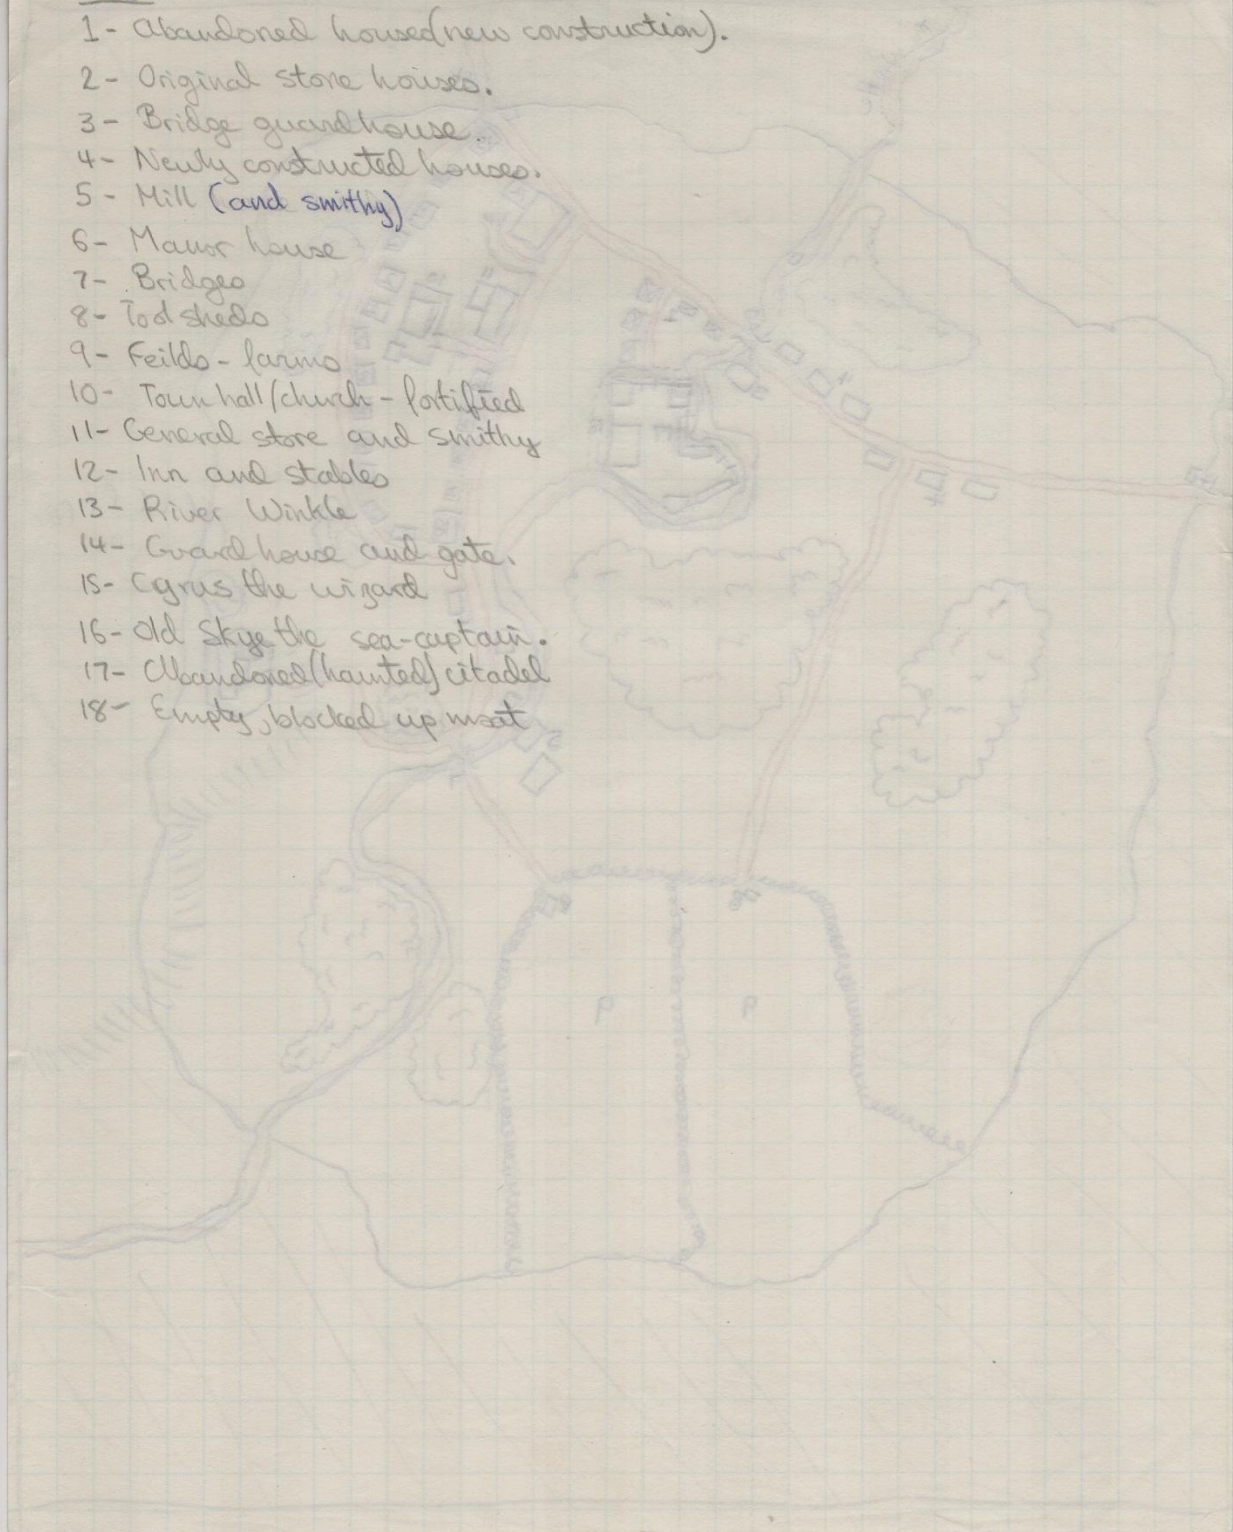 1- Abandoned housed(new construction).
2- Original stone houses.
3- Bridge guardhouse.
4- Newly constructed houses.
5- Mill (and smithy)
6- Manor house
7- Bridges
8- Tool sheds
9- Feilds - farms
10- Town hall/church - fortified
11- General store and smithy
12- Inn and stables
13- River Winkle
14- Guard house and gate.
15- Cyrus the wizard
16- Old Skye the sea-captain.
17- Abandoned(haunted) citadel
18- Empty, blocked up moat